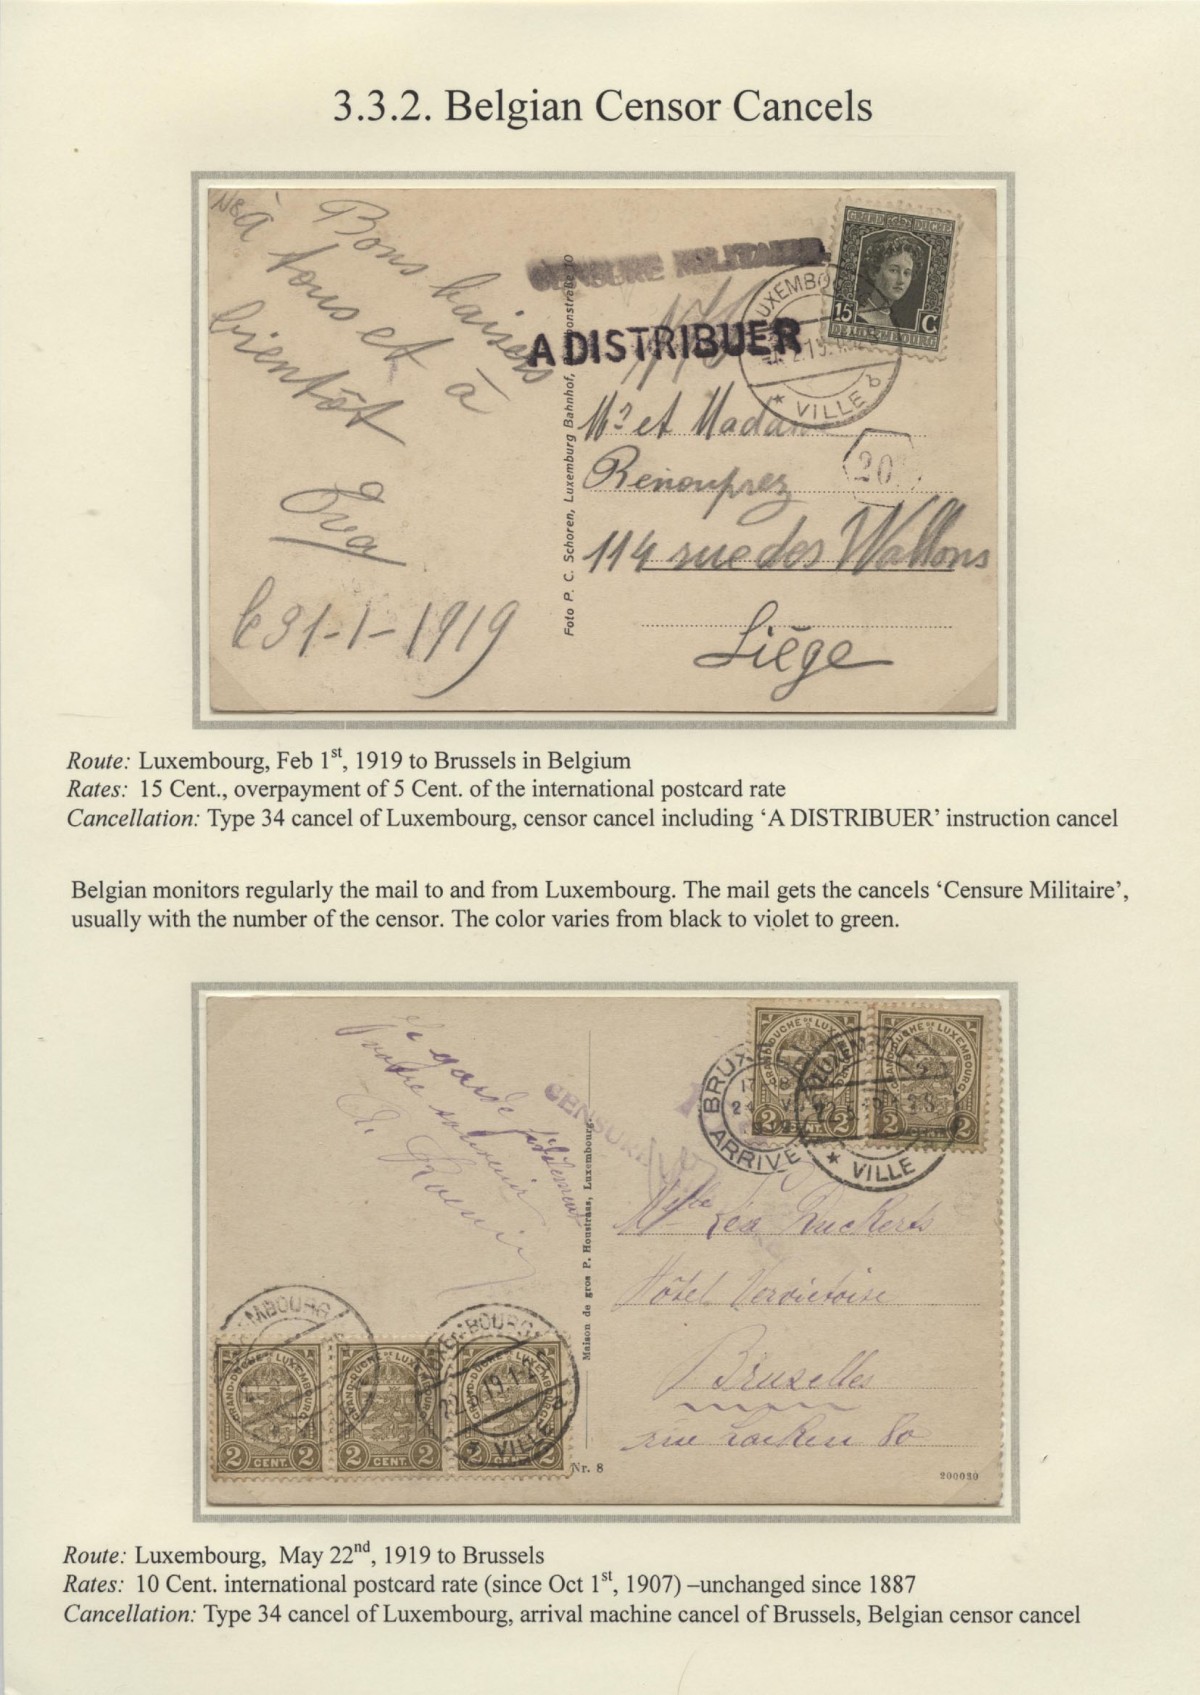 3.3.2. Belgian Censor Cancels
Bons baisers
à tous et à
bientôt
Eva
le 31-1-1919
CENSURE MILITAIRE
A DISTRIBUER
GRAND DUCHÉ
15 C
DE LUXEMBOURG
LUXEMBO
VILLE
Mr et Madame
Renouprez
20
114 rue des Wallons
Liège
Foto P. C. Schoren, Luxemburg Bahnhof,
Route: Luxembourg, Feb 1st, 1919 to Brussels in Belgium
Rates: 15 Cent., overpayment of 5 Cent. of the international postcard rate
Cancellation: Type 34 cancel of Luxembourg, censor cancel including ‘A DISTRIBUER’ instruction cancel
Belgian monitors regularly the mail to and from Luxembourg. The mail gets the cancels ‘Censure Militaire’,
usually with the number of the censor. The color varies from black to violet to green.
Je garde fidèlement
votre souvenir
CENSURE
GRAND-DUCHÉ DE LUXEMBOURG
2 CENT. 2
GRAND-DUCHÉ DE LUXEMBOURG
2 CENT. 2
BRUX
ARRIVE
VILLE
Mlle Léa Duckerts
Hôtel Verviétoise
Bruxelles
rue Laeken 80
Maison de gros P. Houstrass, Luxembourg.
LUXEMBOURG
VILLE
GRAND-DUCHÉ DE LUXEMBOURG
2 CENT. 2
GRAND-DUCHÉ DE LUXEMBOURG
2 CENT. 2
GRAND-DUCHÉ DE LUXEMBOURG
2 CENT. 2
Nr. 8
200030
Route: Luxembourg, May 22nd, 1919 to Brussels
Rates: 10 Cent. international postcard rate (since Oct 1st, 1907) –unchanged since 1887
Cancellation: Type 34 cancel of Luxembourg, arrival machine cancel of Brussels, Belgian censor cancel